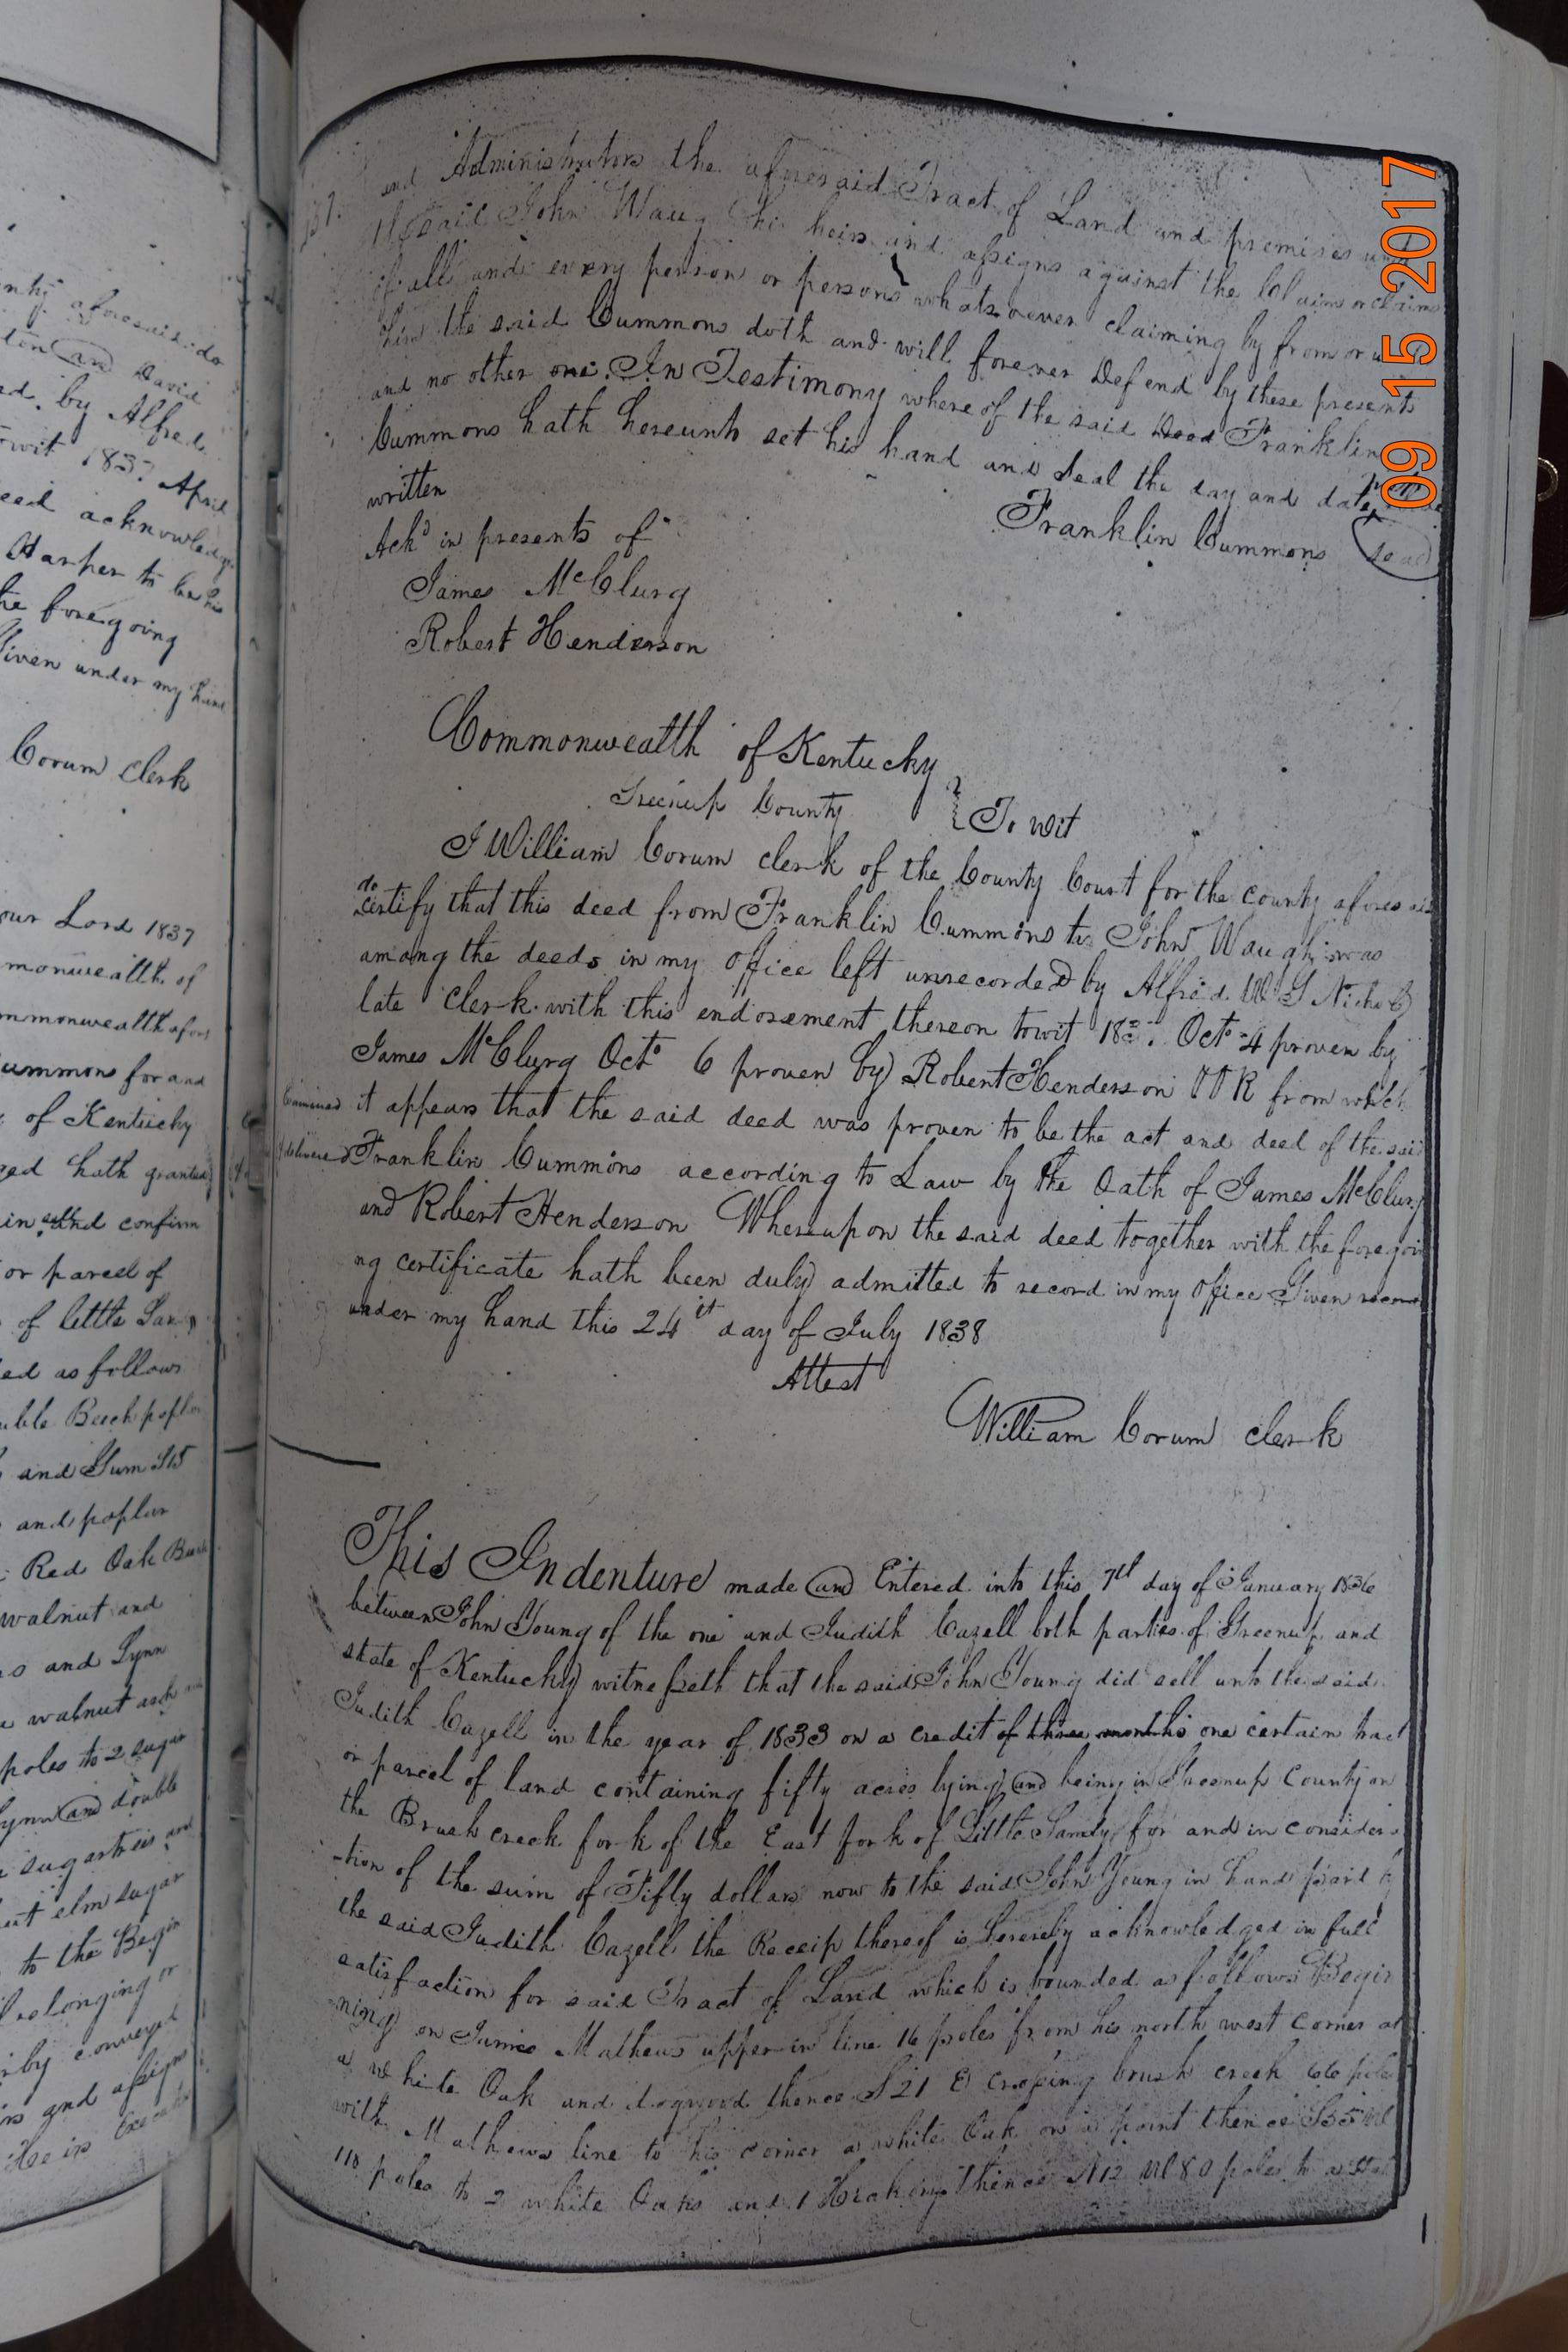 nty aforesaid do
ton and David
ed. by Alfred
towit 1837 April
eed acknowledge
Harper to be his
the foregoing
Given under my hand
Corum Clerk
our Lord 1837
monwealth of
mmonwealth afore
ummons for and
of Kentucky
ged hath granted
in and confirm
or parcel of
of little San
ed as follows
uble Beech poplar
and Gum S15
and poplar
Red Oak
walnut and
s and Lynn
walnut
poles to 2 sugar
Lynn and double
sugartrees and
ut elm sugar
to the Begin
belonging or
by conveyed
rs and assigns
Heirs
137.
and Administrators the aforesaid Tract of Land and premises unto
the said John Waug his heirs and assigns against the Claim or claims
of all and every person or persons whatsoever claiming by from or
him the said Cummons doth and will forever Defend by these presents
and no other one. In Testimony where of the said Deed Franklin
Cummons hath hereunto set his hand and Seal the day and date
written
Franklin Cummons Seal
Ackd in presents of
James McClurg
Robert Henderson
Commonwealth of Kentucky
Greenup County } To wit
I William Corum clerk of the County Court for the county aforesaid
do certify that this deed from Franklin Cummons to John Waugh was
among the deeds in my office left unrecorded by Alfred W G Nichols
late Clerk with this endorsement thereon towit Octo 4 proven by
James McClurg Octo 6 proven by Robert Henderson OTR from which
Examined it appears that the said deed was proven to be the act and deed of the said
& delivered Franklin Cummons according to Law by the Oath of James McClurg
and Robert Henderson Whereupon the said deed together with the foregoi
ng certificate hath been duly admitted to record in my office Given
under my hand this 24th day of July 1838
Attest
William Corum clerk
This Indenture made and Entered into this 7th day of January 1836
between John Young of the one and Judith Cazell both parties of Greenup and
state of Kentucky witnesseth that the said John Young did sell unto the said
Judith Cazell in the year of 1833 on a credit of three months one certain tract
or parcel of land containing fifty acres lying and being in Greenup County on
the Brush creek fork of the East fork of Little Sandy for and in consider
-tion of the sum of Fifty dollars now to the said John Young in hand paid by
the said Judith Cazell the Receip thereof is hereby acknowledged in full
satisfaction for said Tract of Land which is bounded as follows Begin
-ning on James Mathews upper in line 16 poles from his north west corner at
a white Oak and dogwood thence S 21 E crossing brush creek 66 poles
with Mathews line to his corner a white Oak on a point thence S 55 W
110 poles to 2 white Oaks and 1 thence N 12 W 80 poles to a
09 15 2017